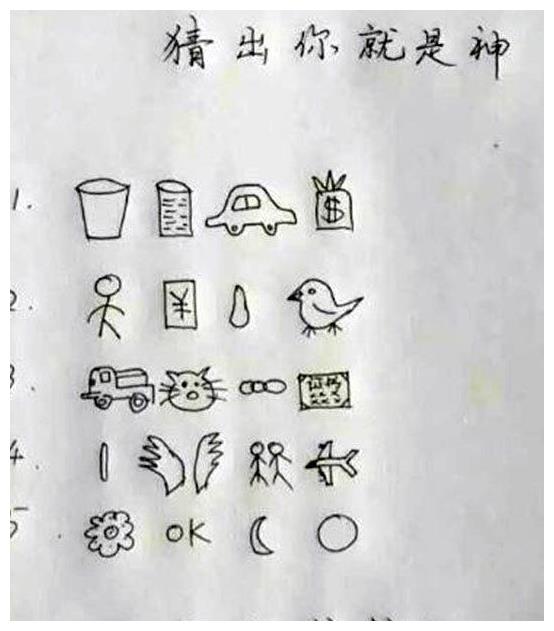 猜出你就是神
1.
$
2.
¥
3.
4.
5
OK